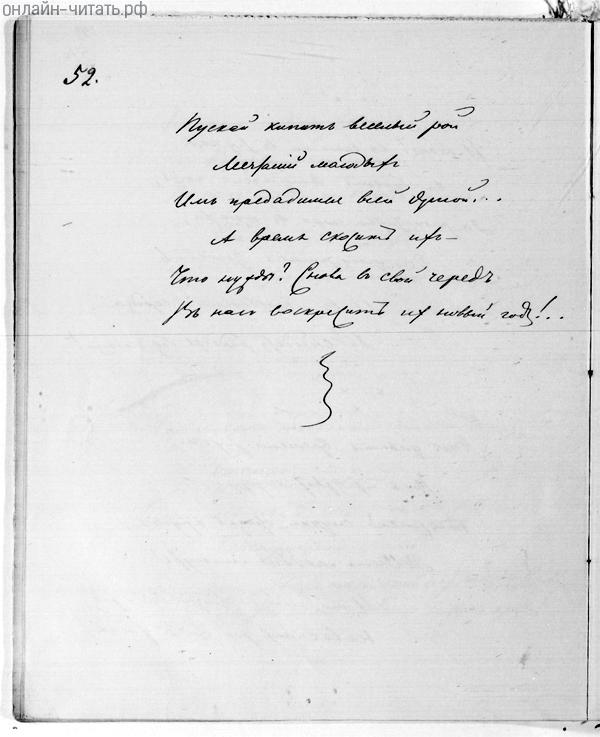 онлайн-читать.рф
52.
Пускай кипитъ веселый рой
Мечтаній молодыхъ
Имъ предадимся всей душой...
А время скоситъ ихъ—
Что нужды? Снова въ свой чередъ
Въ насъ воскреситъ ихъ новый годъ!..